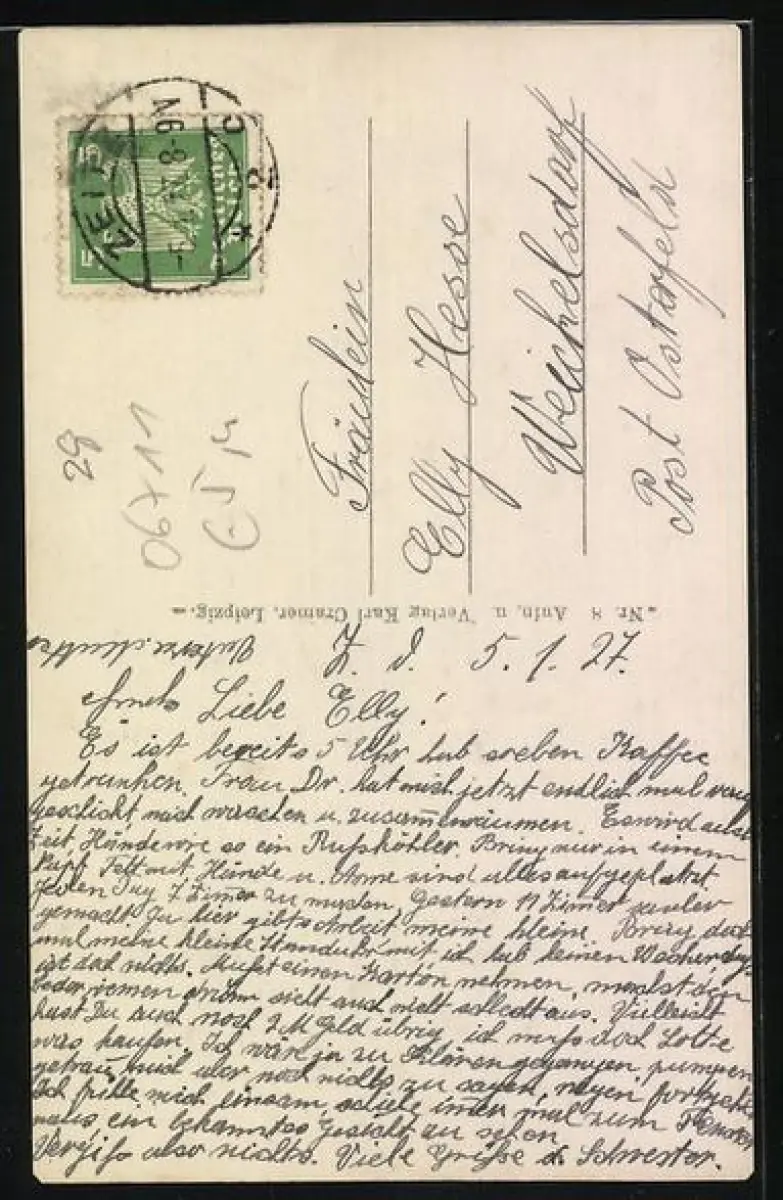 ZEITZ
5.1.27 8-9V
Deutsches Reich
5
29
06711
Fräulein
Elly Hesse
Weickelsdorf
Post Osterfeld
Nr. 8 Aufn. u. Verlag Karl Cramer, Leipzig.
Z. d. 5.1.27.
Liebe Elly!
Es ist bereits 5 Uhr, hab soeben Kaffee
getrunken. Frau Dr. hat mich jetzt endlich mal weg
geschickt mich waschen u. zusammenräumen. Es wird auch
Zeit, Hände wie so ein Rußköhler. Bring nur in einem
Fett mit, Hände u. Arme sind alles aufgeplatzt.
Jeden Tag 7 Zimmer zu machen. Gestern 11 Zimmer sauber
gemacht. Ja hier gibts Arbeit meine kleine. Bring doch
mal meine kleine Standuhr mit, ich hab keinen Wecker, das
ist doch nichts. Mußt einen Karton nehmen, machst den
Lederriemen drum sieht auch nicht schlecht aus. Vielleicht
hast Du auch noch 2 M Geld übrig, ich muß doch Lotte
was kaufen. Ich wär ja zu gegangen, pumpen
getrau mich aber noch nichts zu sagen, wegen
Ich fühle mich einsam, schiele immer mal zum Fenster
naus ein bekanntes Gesicht zu sehen.
Vergiß also nichts. Viele Grüße d. Schwester.